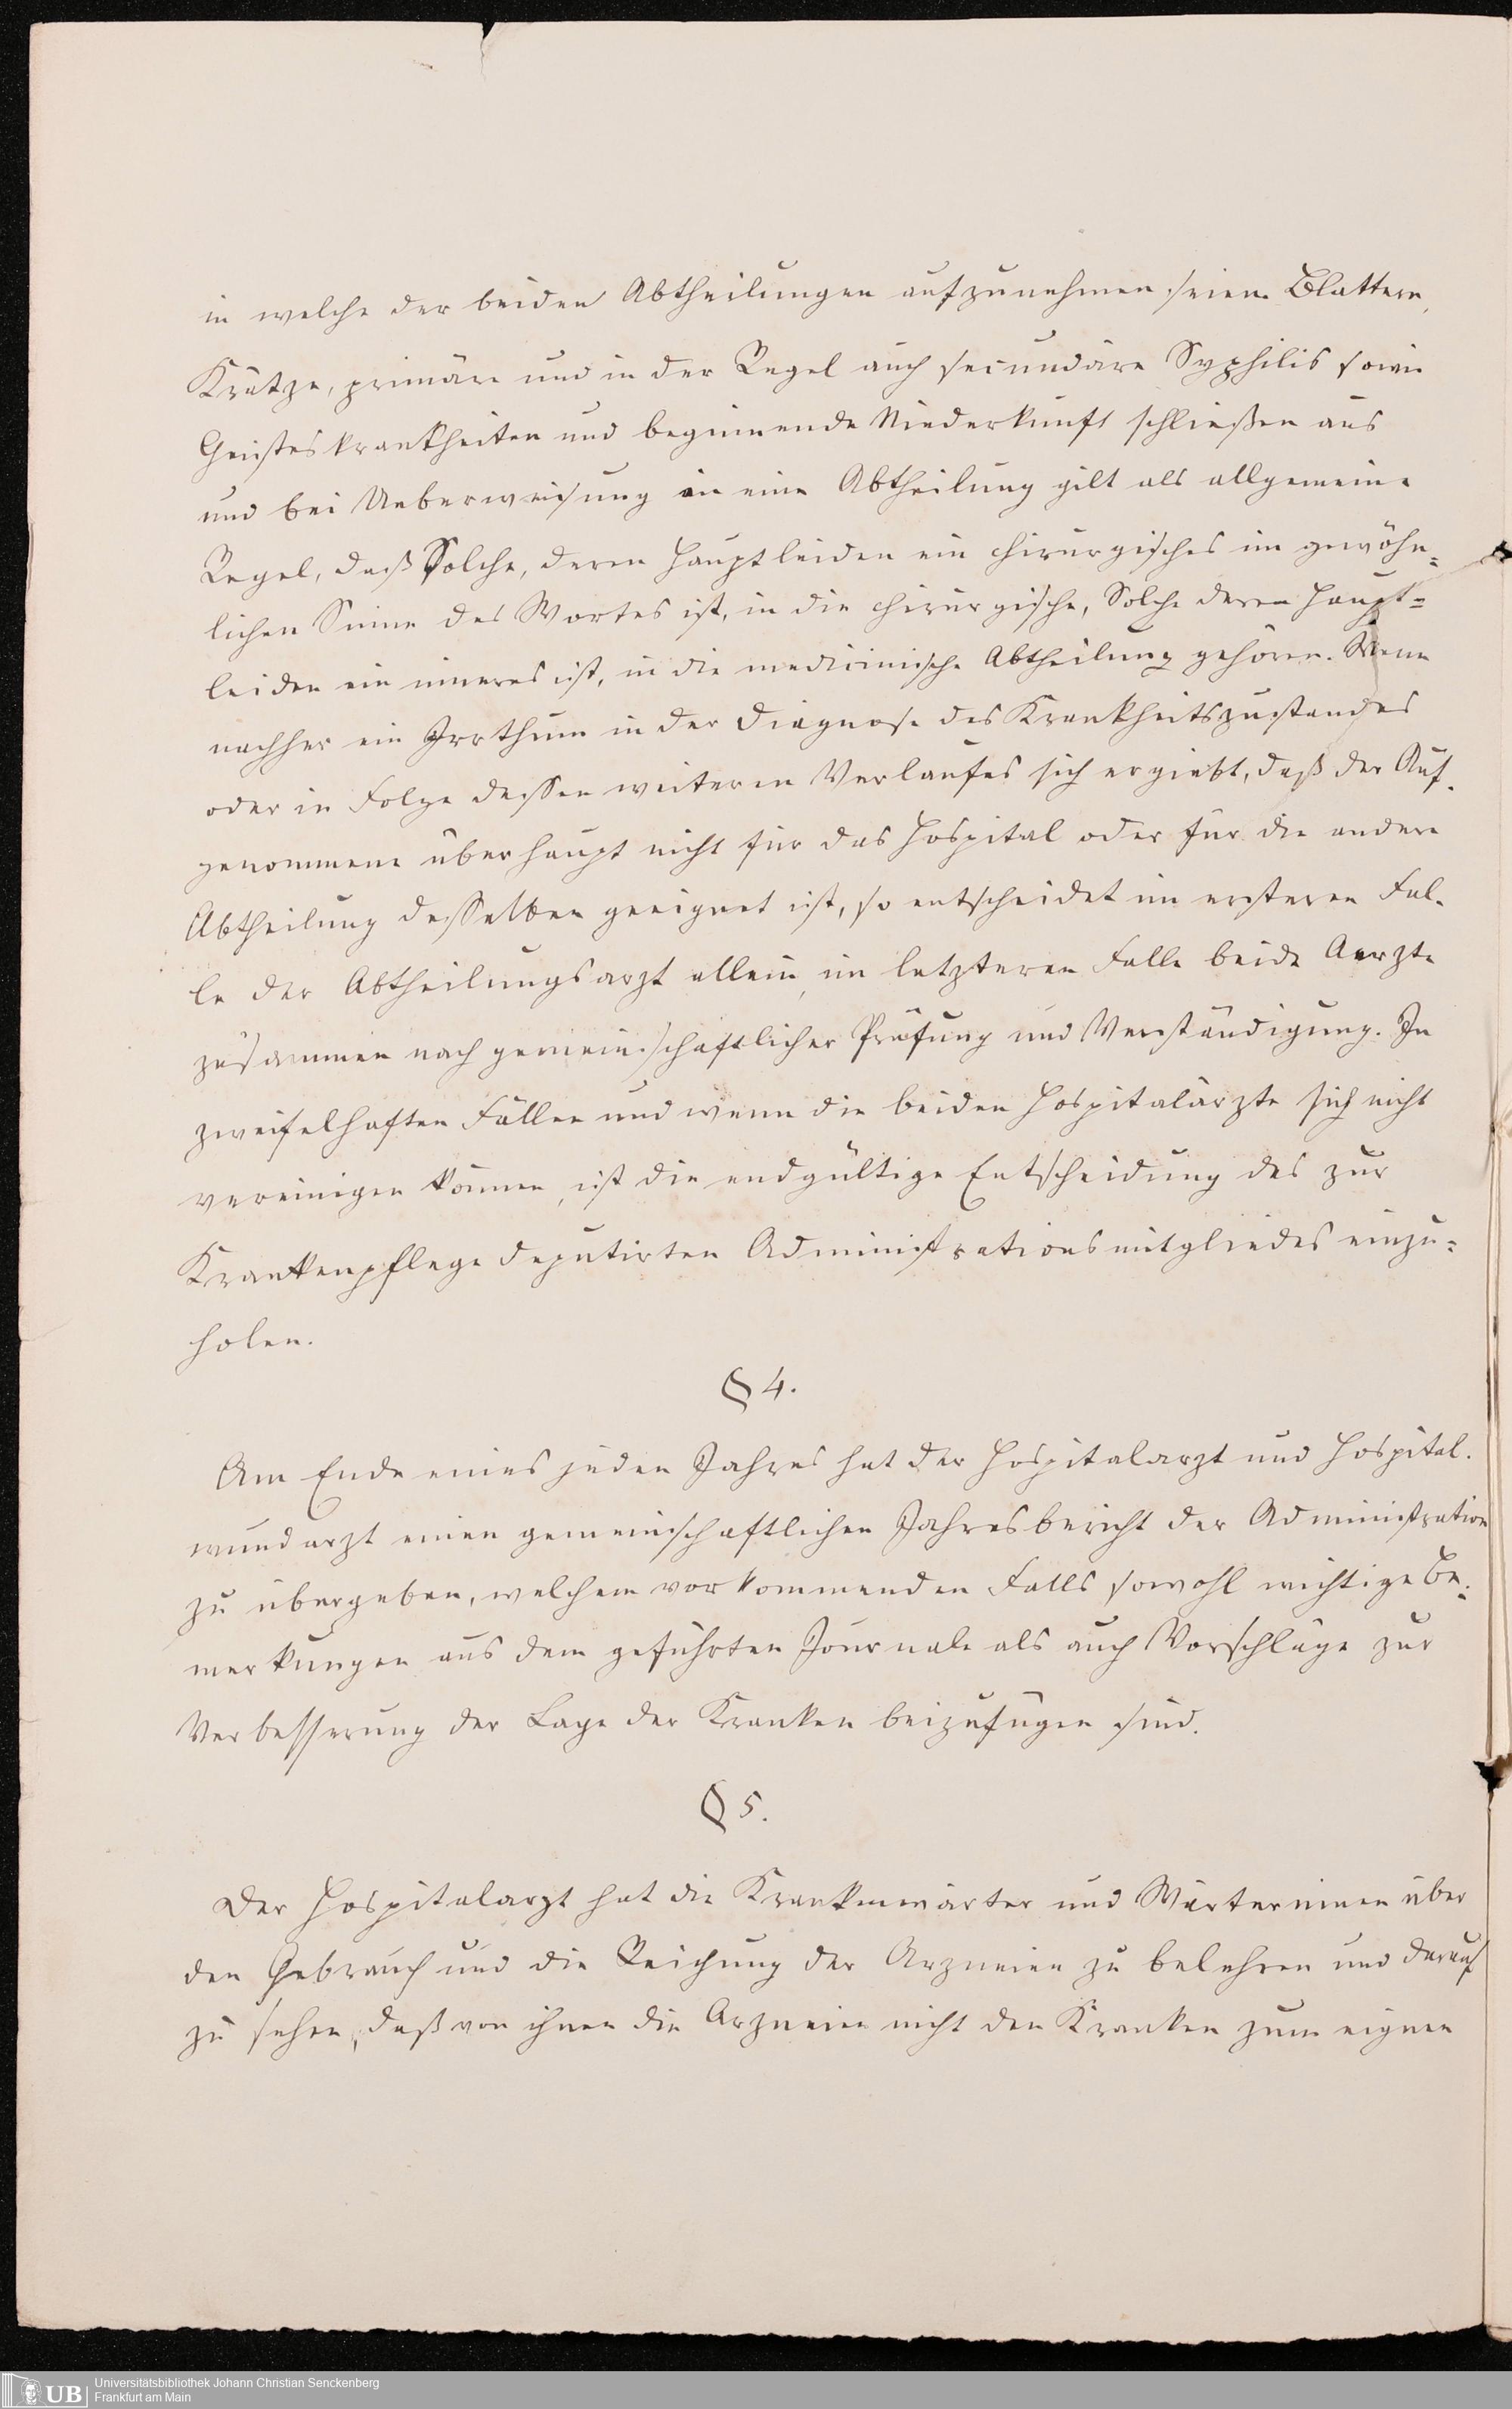 in welche der beiden Abtheilungen aufzunehmen seien. Blattern,
Krätze, primäre und in der Regel auch secundäre Syphilis sowie
Geisteskrankheiten und beginnende Niederkunft schließen aus
und bei Ueberweisung in eine Abtheilung gilt als allgemeine
Regel, daß Solche, deren Hauptleiden ein chirurgisches im gewöhn-
lichen Sinne des Wortes ist, in die chirurgische, Solche deren Haupt=
leiden ein inneres ist, in die medicinische Abtheilung gehören. Wenn
nachher ein Irrthum in der Diagnose des Krankheitszustandes
oder in Folge dessen weiteren Verlaufes sich ergiebt, daß der Auf-
genommene überhaupt nicht für das Hospital oder für die andere
Abtheilung desselben geeignet ist, so entscheidet im ersteren Fal-
le der Abtheilungsarzt allein, im letzteren Falle beide Aerzte
zusammen nach gemeinschaftlicher Prüfung und Verständigung. In
zweifelhaften Fällen und wenn die beiden Hospitalärzte sich nicht
vereinigen können, ist die endgültige Entscheidung des zur
Krankenpflege deputirten Administrationsmitgliedes einzu=
holen.
§ 4.
Am Ende eines jeden Jahres hat der Hospitalarzt und Hospital-
wundarzt einen gemeinschaftlichen Jahresbericht der Administration
zu übergeben, welchem vorkommenden Falls sowohl wichtige Be-
merkungen aus dem geführten Journale als auch Vorschläge zur
Verbesserung der Lage der Kranken beizufügen sind.
§ 5.
Der Hospitalarzt hat die Krankenwärter und Wärterinnen über
den Gebrauch und die Reichung der Arzneien zu belehren und darauf
zu sehen, daß von ihnen die Arzneien nicht den Kranken zum eignen
UB
Universitätsbibliothek Johann Christian Senckenberg
Frankfurt am Main